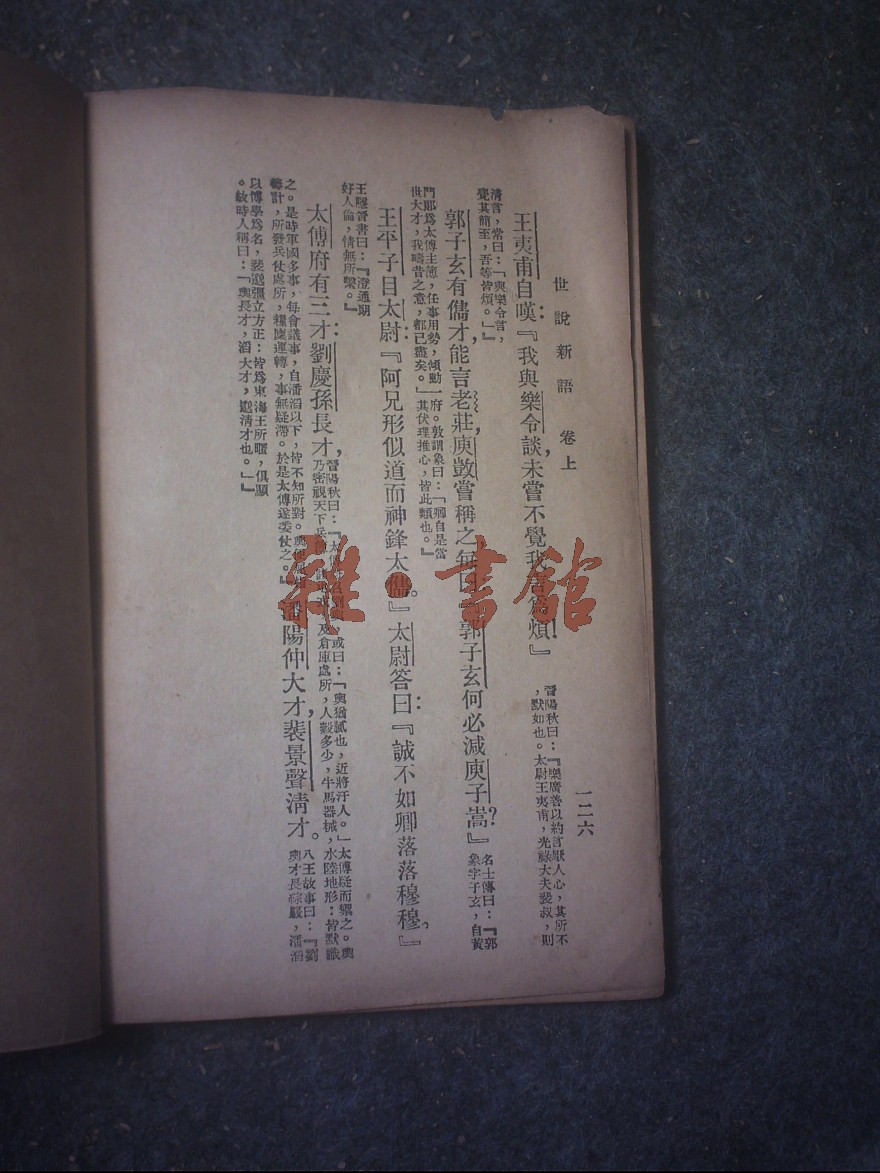 世說新語 卷上
一二六
王夷甫自嘆：『我與樂令談，未嘗不覺我言爲煩！』
晉陽秋曰：『樂廣善以約言厭人心，其所不
，默如也。太尉王夷甫，光祿大夫裴叔，則
清言，常曰：「與樂令言，
覺其簡至，吾等皆煩。」』
郭子玄有儁才，能言老莊，庾敳嘗稱之，每曰『郭子玄何必減庾子嵩？』
名士傳曰：『郭
象字子玄，自黃
門郎爲太傅主簿，任事用勢，傾動一府。敳謂象曰：「卿自是當
世大才，我疇昔之意，都已盡矣。」其伏理推心，皆此類也。』
王平子目太尉：『阿兄形似道，而神鋒太儁。』太尉答曰：『誠不如卿落落穆穆，』
王隱晉書曰：『澄通朗
好人倫，情無所繫。』
太傅府有三才：劉慶孫長才，
晉陽秋曰：『太傅 召劉 ，或曰：「輿猶膩也，近將汙人。」太傅疑而禦之。輿
乃密視天下兵 及倉庫處所，人穀多少，牛馬器械，水陸地形：皆默識
之。是時軍國多事，每會議事，自潘滔以下，皆不知所對。輿
轉計，所發兵仗處所，糧廩運轉，事無疑滯。於是太傅遂委仗之。』
潘陽仲大才，裴景聲清才。
八王故事曰：『劉
輿才長綜覈，潘滔
以博學爲名，裴邈彊立方正：皆爲東海王所暱，俱顯
。故時人稱曰：「輿長才，滔大才，邈清才也。」』
雜·書館